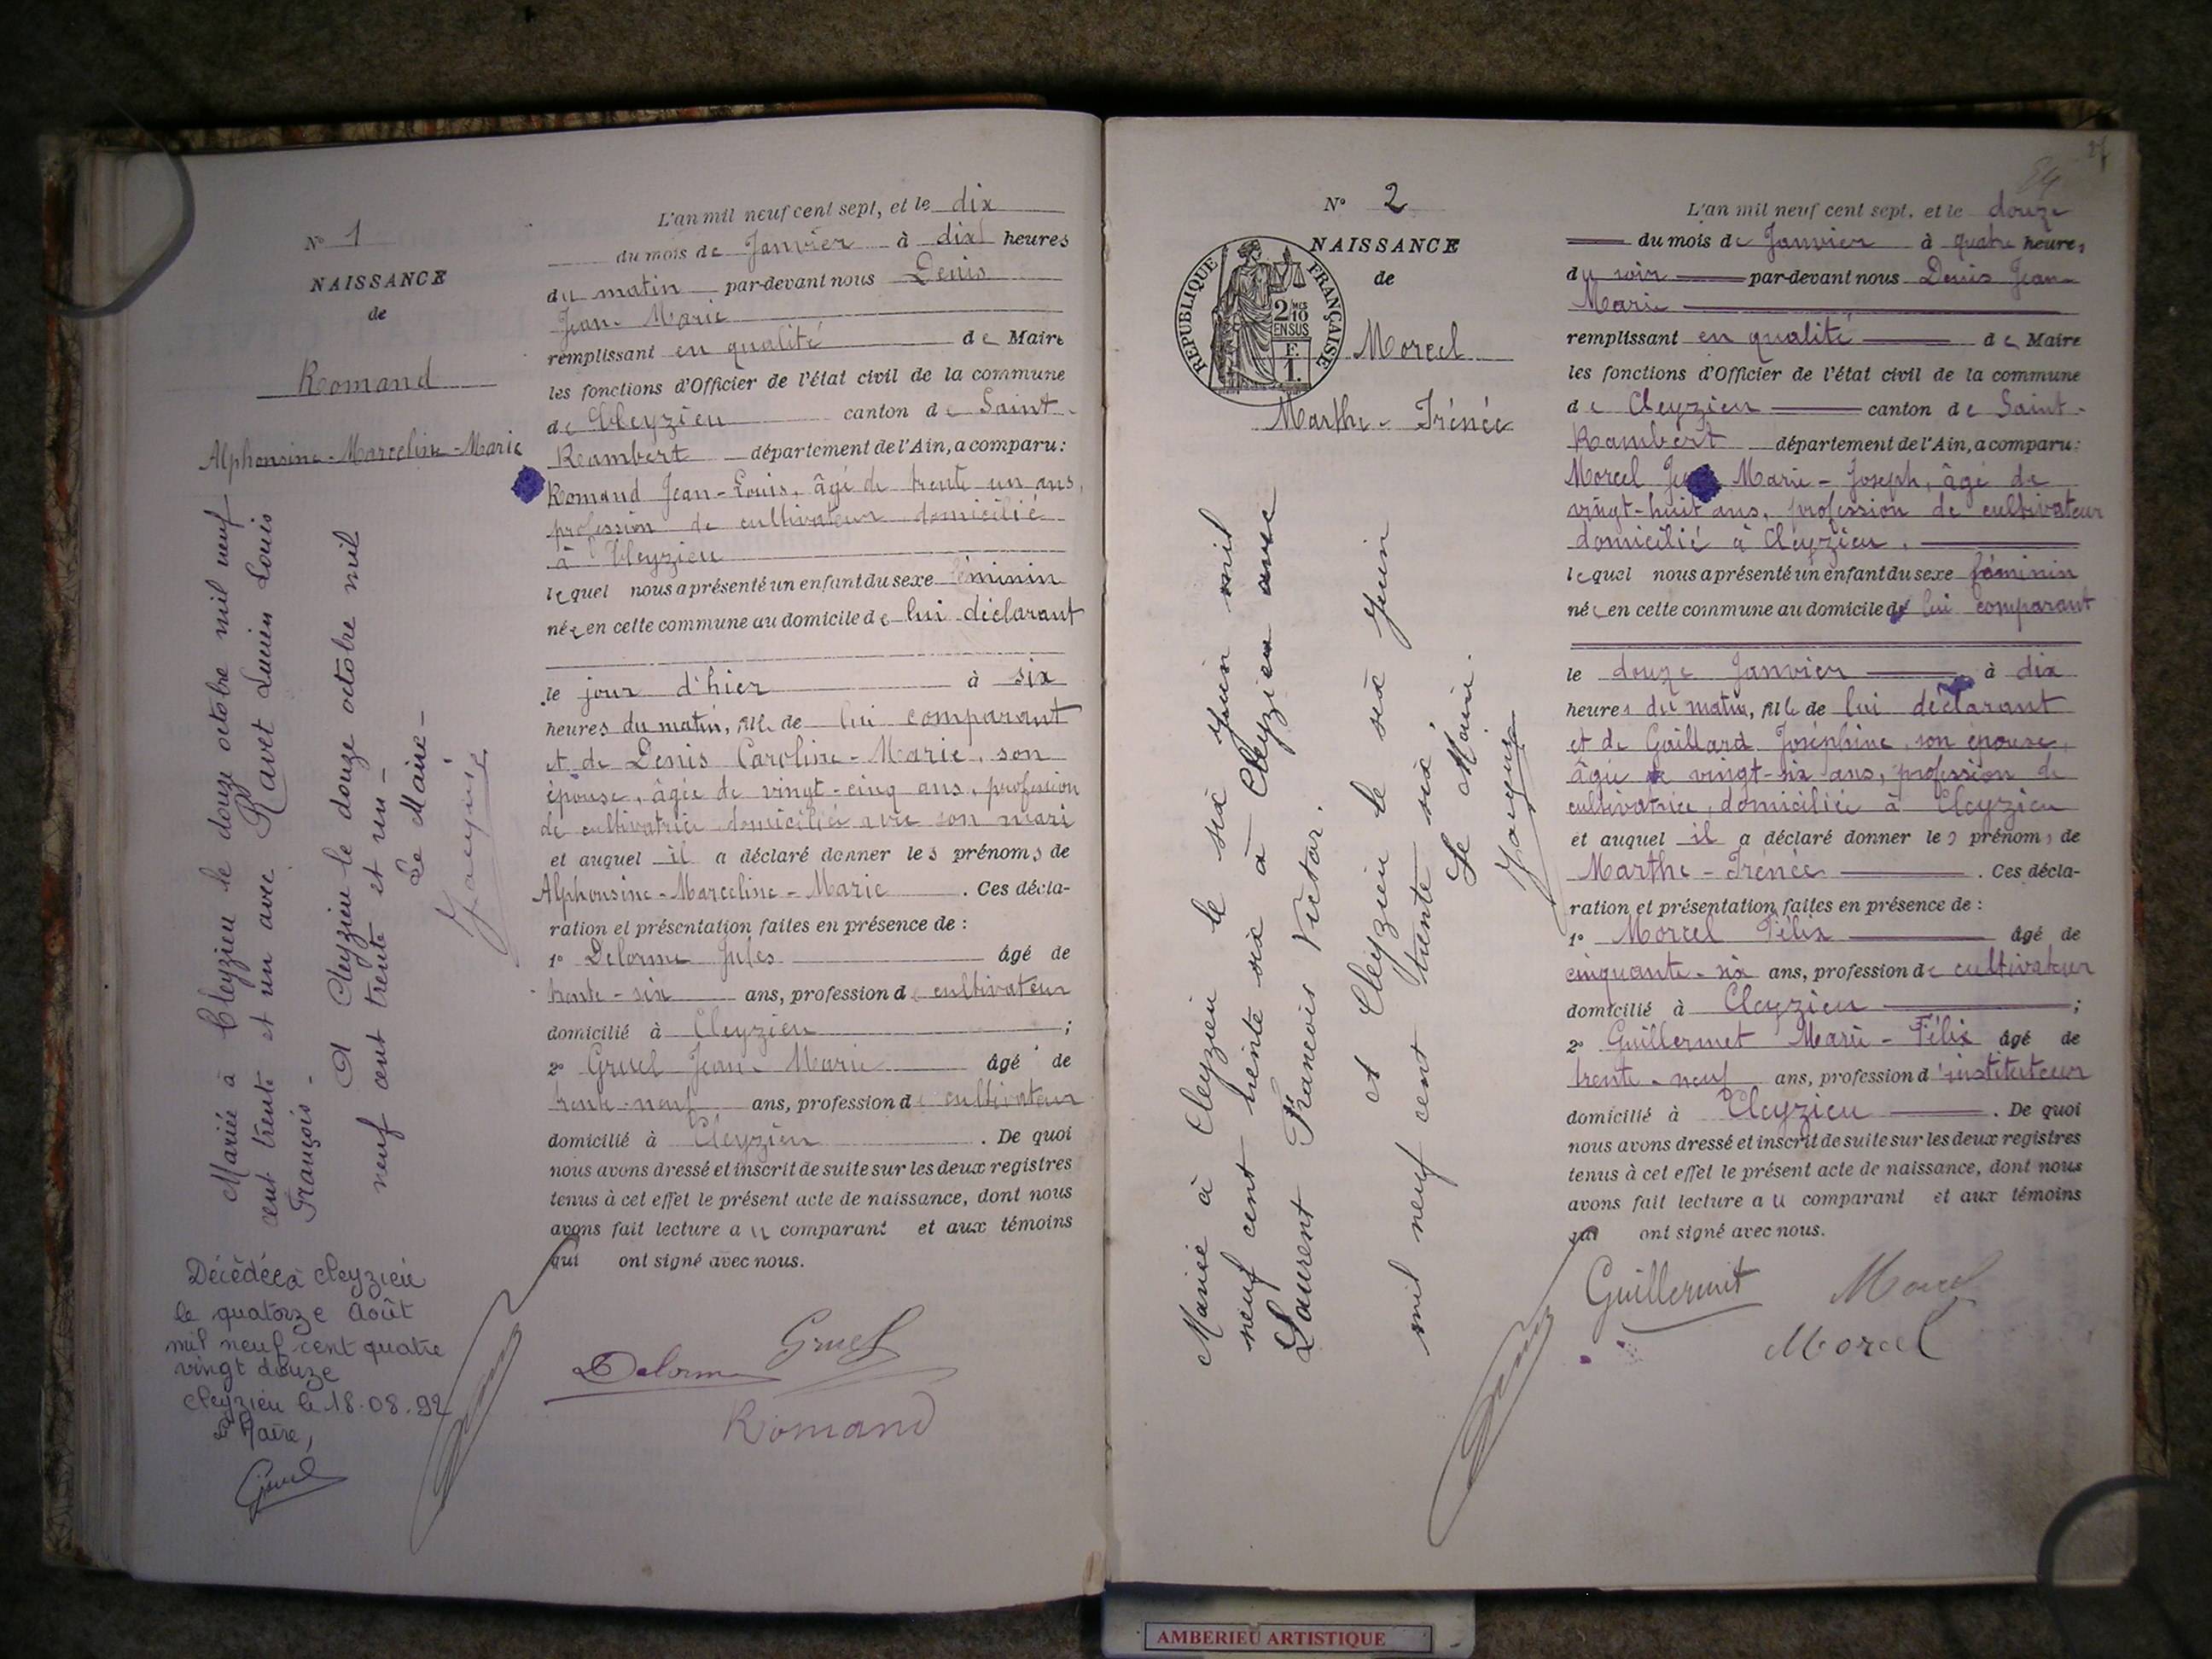 N° 1
NAISSANCE
de
Romand
Alphonsine-Marceline-Marie
Mariée à Cleyzieu le douze octobre mil neuf
cent trente et un avec Ravet Lucien Louis
François -
A Cleyzieu le douze octobre mil
neuf cent trente et un -
Le Maire -
Jacquis
Décédée à Cleyzieu
le quatorze Août
mil neuf cent quatre
vingt douze
Cleyzieu le 18.08.92
Le Maire,
Gruel
L'an mil neuf cent sept, et le dix
du mois de Janvier à dix heures
du matin par-devant nous Denis
Jean-Marie
remplissant en qualité de Maire
les fonctions d'Officier de l'état civil de la commune
de Cleyzieu canton de Saint-
Rambert département de l'Ain, a comparu:
Romand Jean-Louis, âgé de trente un ans,
profession de cultivateur domicilié
à Cleyzieu
lequel nous a présenté un enfant du sexe féminin
née en cette commune au domicile de lui déclarant
le jour d'hier à six
heures du matin, fille de lui comparant
et de Denis Caroline-Marie, son
épouse, âgée de vingt-cinq ans, profession
de cultivatrice domiciliée avec son mari
et auquel il a déclaré donner les prénoms de
Alphonsine-Marceline-Marie. Ces décla-
ration et présentation faites en présence de :
1° Delorme Jules âgé de
trente-six ans, profession de cultivateur
domicilié à Cleyzieu ;
2° Gruel Jean-Marie âgé de
trente-neuf ans, profession de cultivateur
domicilié à Cleyzieu. De quoi
nous avons dressé et inscrit de suite sur les deux registres
tenus à cet effet le présent acte de naissance, dont nous
avons fait lecture au comparant et aux témoins
qui ont signé avec nous.
Delorme Gruel
Romand
N° 2
NAISSANCE
de
REPUBLIQUE FRANÇAISE
2/10 MES
EN SUS
F.
1.
Morcel
Marthe-Irénée
Mariée à Cleyzieu le six Juin mil
neuf cent trente six à Cleyzieu avec
Laurent François Victor.
et Cleyzieu le six Juin
mil neuf cent trente six
Le Maire.
Jacquis
27
84
L'an mil neuf cent sept, et le douze
du mois de Janvier à quatre heures
du soir par-devant nous Denis Jean-
Marie
remplissant en qualité de Maire
les fonctions d'Officier de l'état civil de la commune
de Cleyzieu canton de Saint-
Rambert département de l'Ain, a comparu:
Morcel Marie-Joseph, âgé de
vingt-huit ans, profession de cultivateur
domicilié à Cleyzieu.
lequel nous a présenté un enfant du sexe féminin
née en cette commune au domicile de lui comparant
le douze Janvier à dix
heures du matin, fille de lui déclarant
et de Gaillard Joséphine, son épouse,
âgée de vingt-six ans, profession de
cultivatrice, domiciliée à Cleyzieu
et auquel il a déclaré donner les prénoms de
Marthe-Irénée. Ces décla-
ration et présentation faites en présence de :
1° Morcel Félix âgé de
cinquante-six ans, profession de cultivateur
domicilié à Cleyzieu ;
2° Guillermet Marie-Félix âgé de
trente-neuf ans, profession d'instituteur
domicilié à Cleyzieu. De quoi
nous avons dressé et inscrit de suite sur les deux registres
tenus à cet effet le présent acte de naissance, dont nous
avons fait lecture au comparant et aux témoins
qui ont signé avec nous.
Guillermet Morcel
Morcel
AMBERIEU ARTISTIQUE